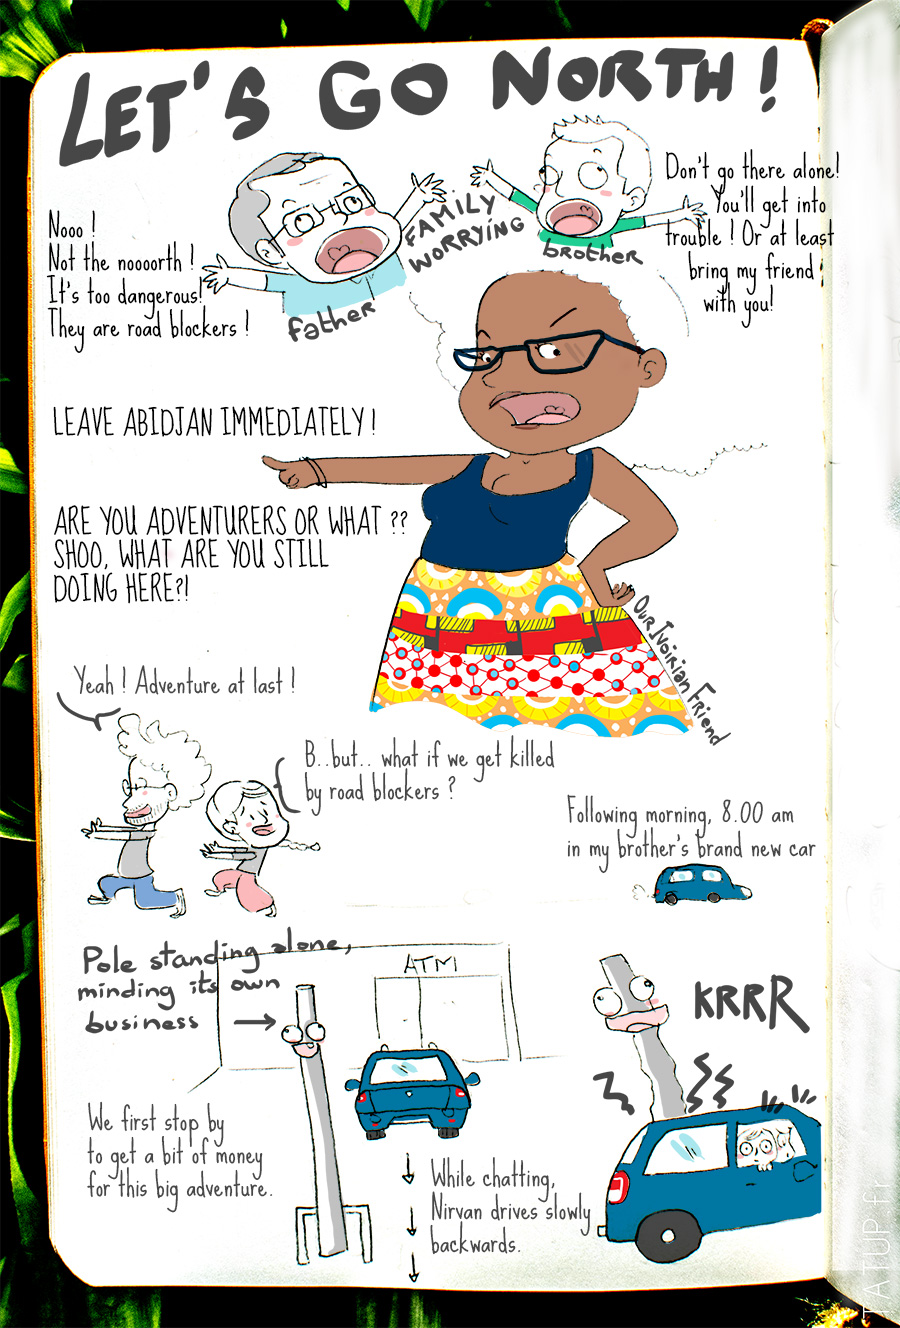 LET'S GO NORTH!
Nooo !
Not the noooorth !
It's too dangerous!
They are road blockers !
father
FAMILY
WORRYING
brother
Don't go there alone!
You'll get into
trouble ! Or at least
bring my friend
with you!
LEAVE ABIDJAN IMMEDIATELY !
ARE YOU ADVENTURERS OR WHAT ??
SHOO, WHAT ARE YOU STILL
DOING HERE?!
OUR IVOIRIAN FRIEND
Yeah ! Adventure at last !
B..but.. what if we get killed
by road blockers ?
Following morning, 8.00 am
in my brother's brand new car
Pole standing alone,
minding its own
business
ATM
KRRR
We first stop by
to get a bit of money
for this big adventure.
While chatting,
Nirvan drives slowly
backwards.
TATUP.fr